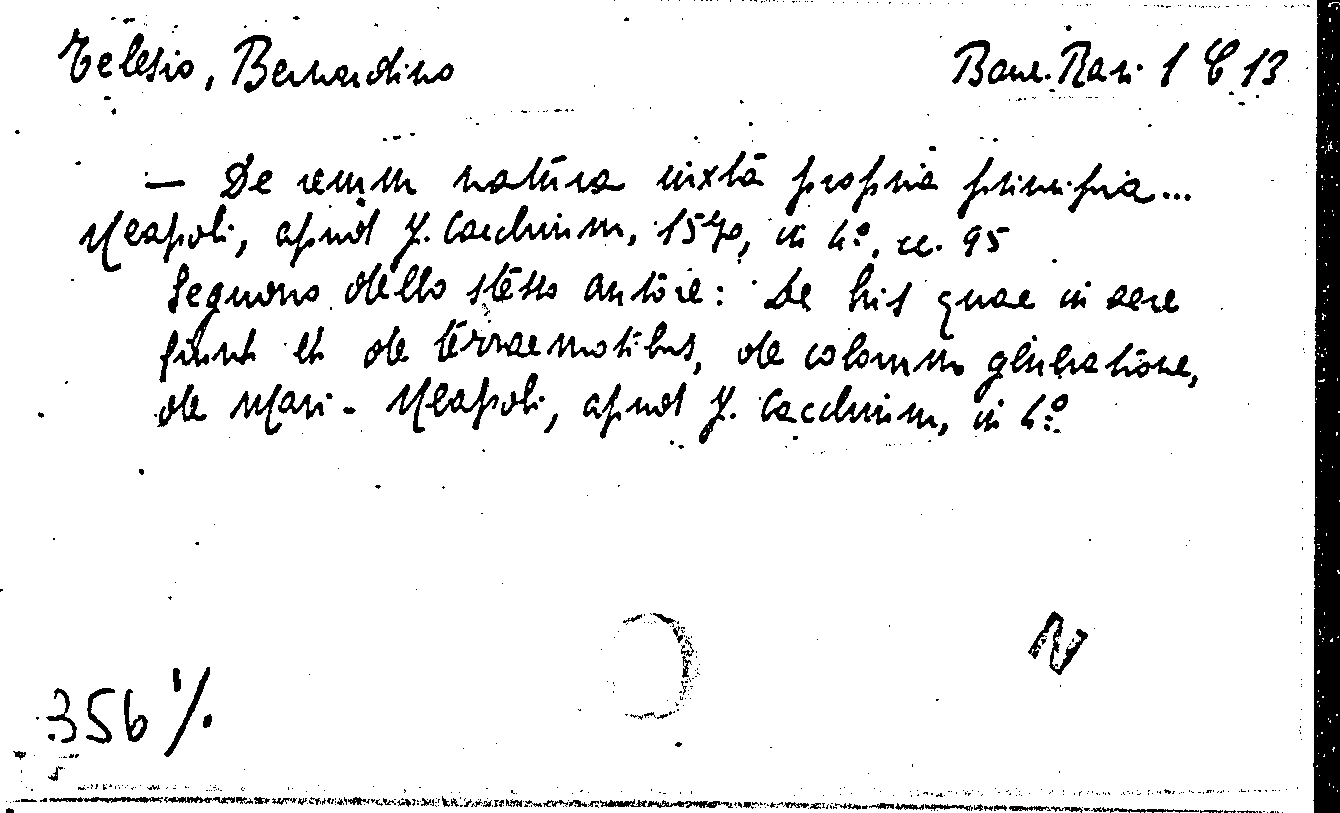 Telesio, Bernardino Banc. Rari 1 C 13
— De rerum natura iuxta propria principia...
Neapoli, apud J. Cacchium, 1570, in 4º, cc. 95
Seguono dello stesso autore: De his quae in aere
fiunt et de terraemotibus, de colorum generatione,
de Mari - Neapoli, apud J. Cacchium, in 4º
N
356